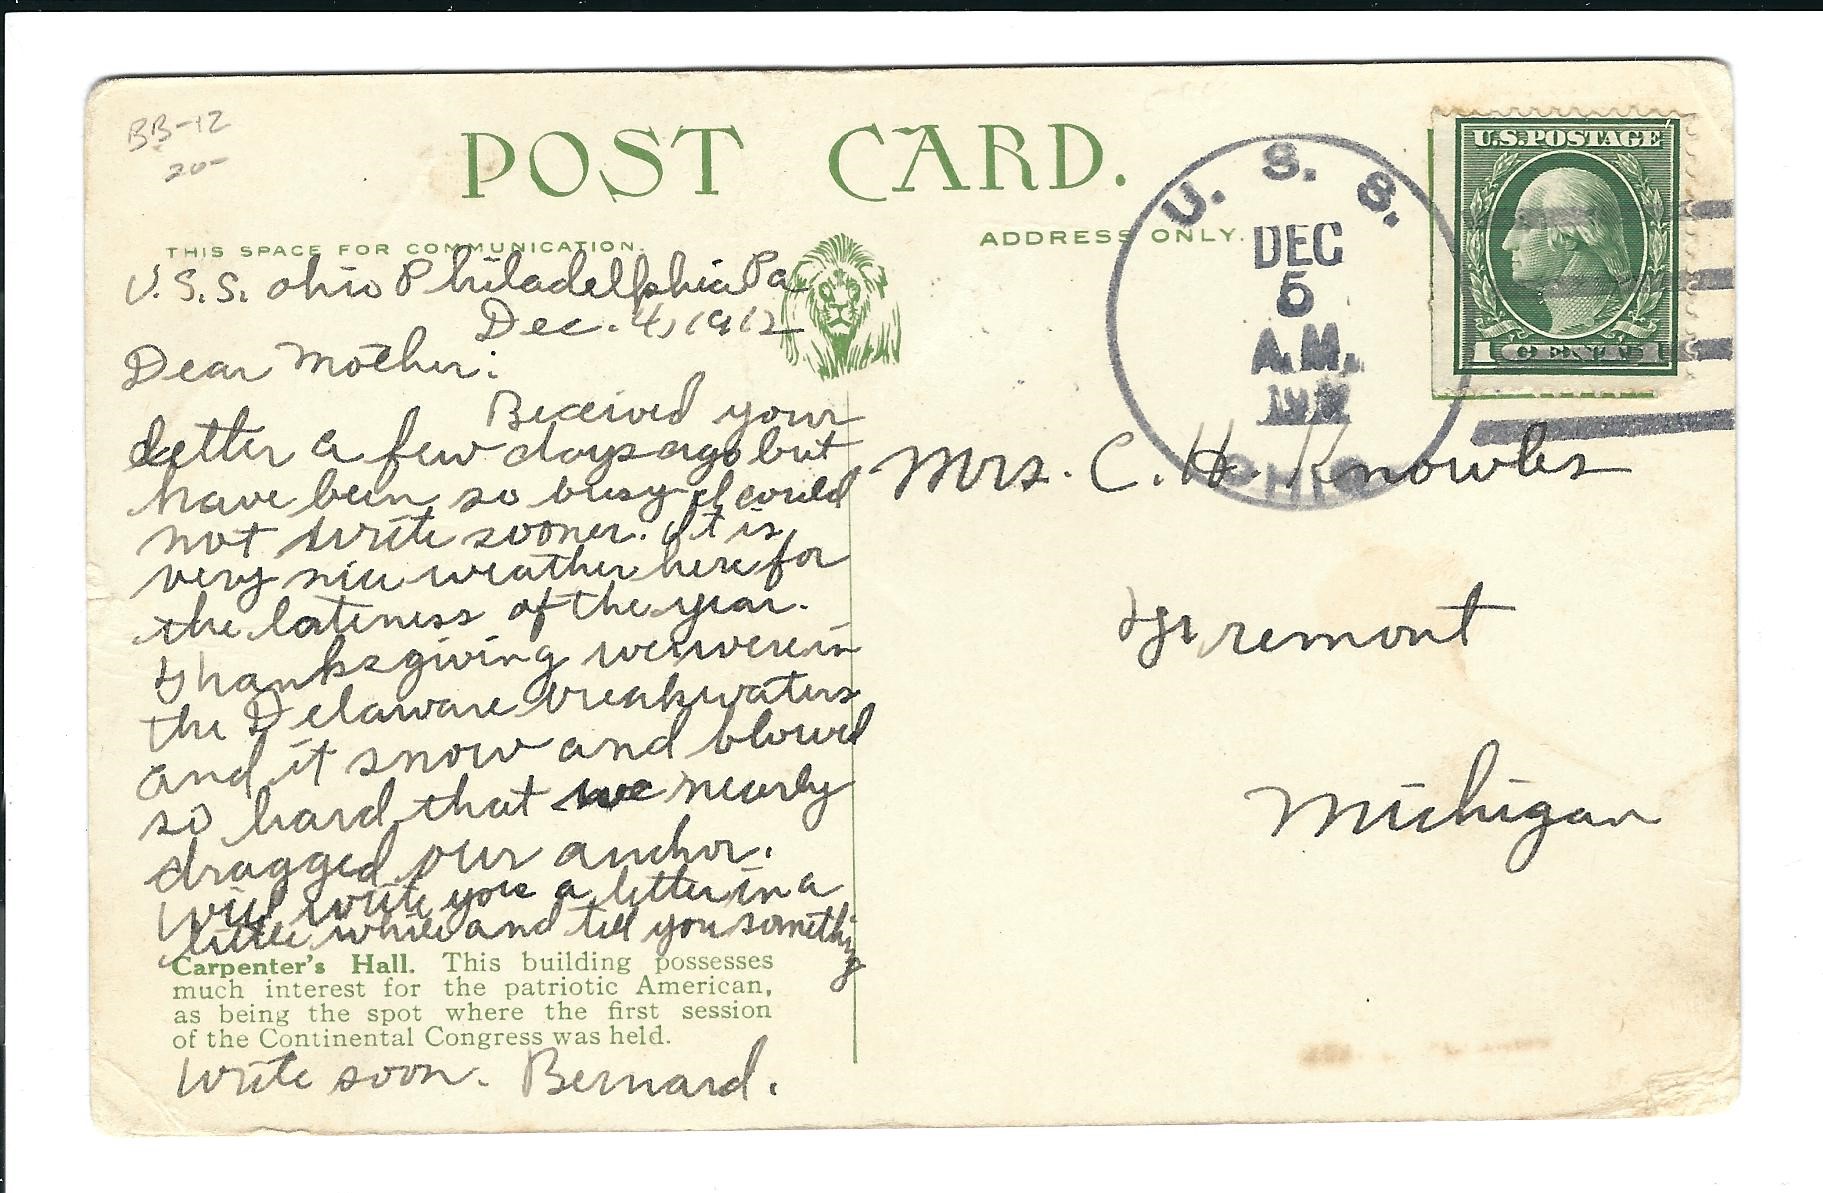 BB-12
20-
POST CARD.
THIS SPACE FOR COMMUNICATION.
ADDRESS ONLY.
U. S. S.
DEC
5
A.M.
OHIO
U.S. POSTAGE
1 CENT 1
U.S.S. Ohio Philadelphia Pa
Dec. 4, 1912
Dear Mother:
Received your
letter a few days ago but
have been so busy I could
not write sooner. It is
very nice weather here for
the lateness of the year.
Thanksgiving we were in
the Delaware breakwaters
and it snow and blowed
so hard that we nearly
dragged our anchor.
Will write you a letter in a
little while and tell you something
Carpenter's Hall. This building possesses
much interest for the patriotic American,
as being the spot where the first session
of the Continental Congress was held.
Write soon. Bernard.
Mrs. C. H. Knowles
Fremont
Michigan